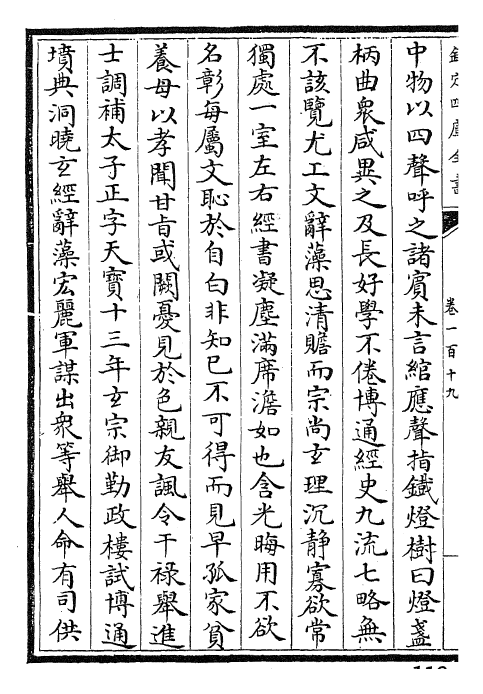 欽定四庫全書
卷一百十九
中物以四聲呼之諸賓未言綰應聲指鐵燈樹曰燈盞
柄曲衆咸異之及長好學不倦博通經史九流七略無
不該覽尤工文辭藻思清贍而宗尚玄理沉静寡欲常
獨處一室左右經書凝塵滿席澹如也含光晦用不欲
名彰每屬文恥於自白非知已不可得而見早孤家貧
養母以孝聞甘㫖或闕憂見於色親友諷令干禄舉進
士調補太子正字天寶十三年玄宗御勤政樓試博通
墳典洞曉玄經辭藻宏麗軍謀出衆等舉人命有司供